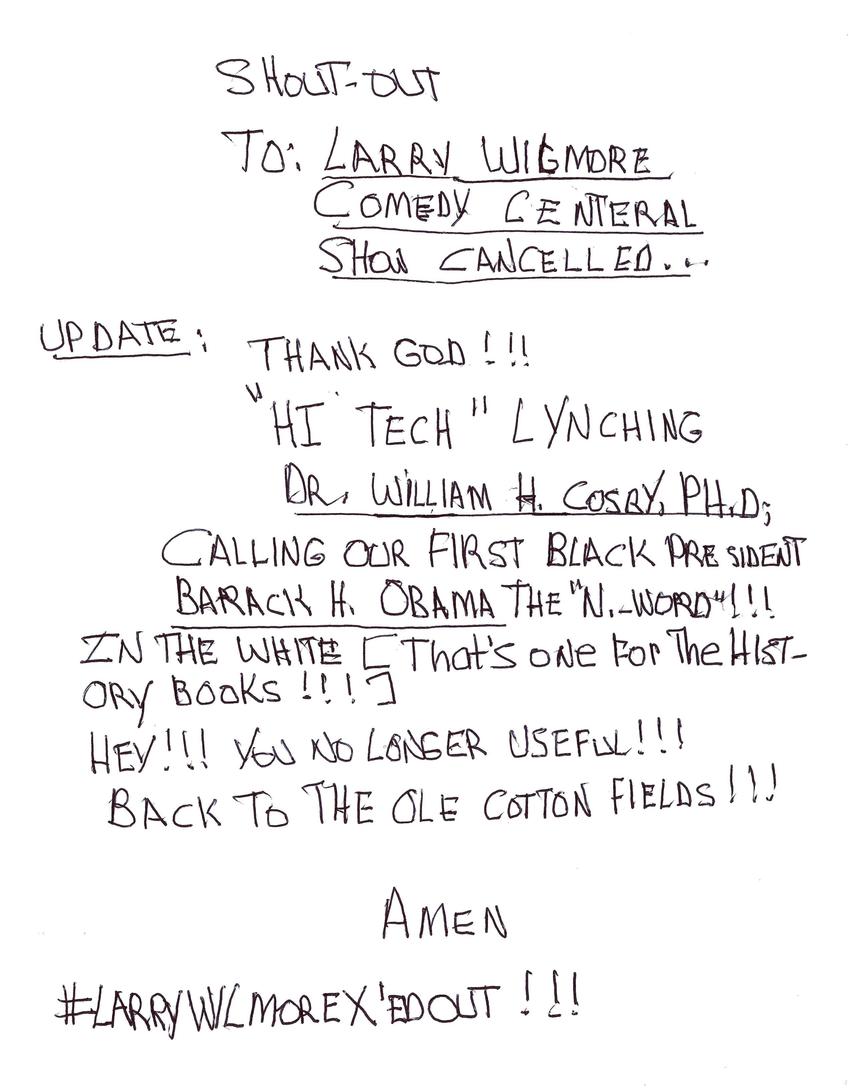 SHOUT-OUT
TO: LARRY WIGMORE
COMEDY CENTERAL
SHOW CANCELLED...
UPDATE: THANK GOD!!!
"HI TECH" LYNCHING
DR. WILLIAM H. COSBY, PH.D;
CALLING OUR FIRST BLACK PRESIDENT
BARACK H. OBAMA THE "N.-WORD"!!!
IN THE WHITE [That's one For The HIST-
ORY BOOKS!!!]
HEY!!! YOU NO LONGER USEFUL!!!
BACK TO THE OLE COTTON FIELDS!!!
AMEN
#LARRYWILMOREX'EDOUT!!!